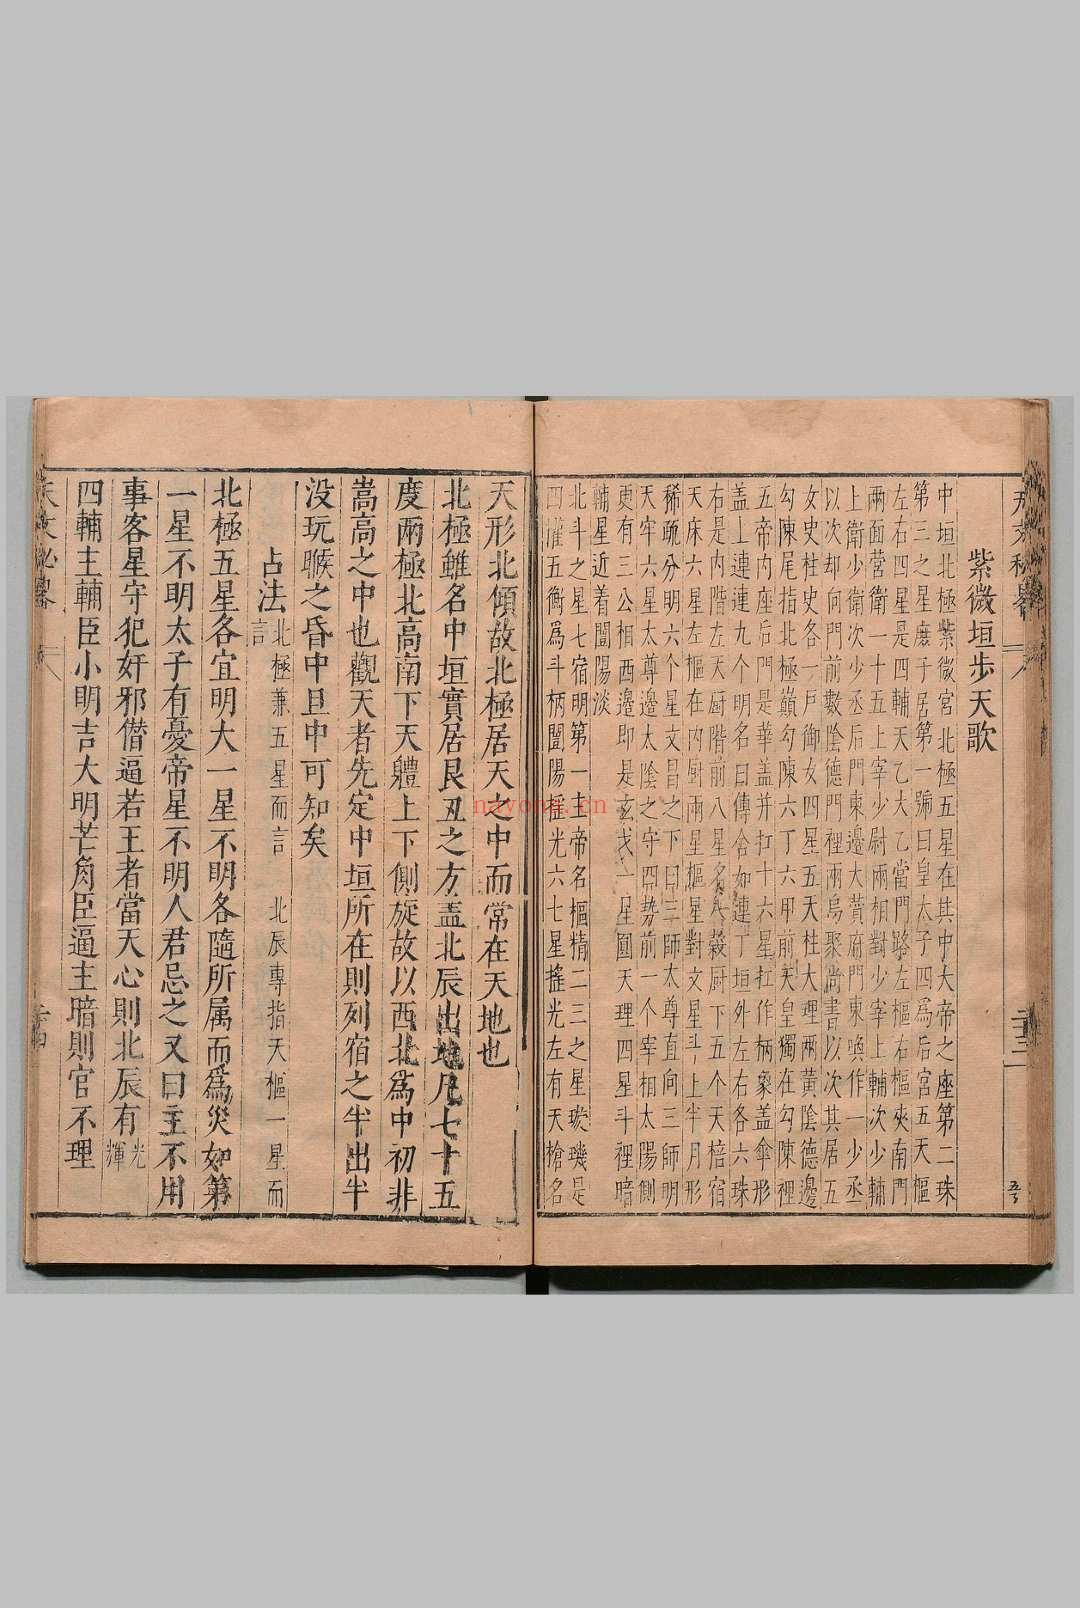 紫微垣步天歌
中垣北極紫微宮北極五星在其中大帝之座第二珠
第三之星庶子居第一號曰皇太子四爲后宮五天樞
左右四星是四輔天乙太乙當門路左樞右樞夾南門
兩面營衛一十五上宰少尉兩相對少宰上輔次少輔
上衛少衛次少丞后門東邊大贊府門東喚作一少丞
以次却向門前數陰德門裡兩烏聚尚書以次其居五
女史柱史各一戶御女四星五天柱大理兩黃陰德邊
勾陳尾指北極巔勾陳六丁六甲前天皇獨在勾陳裡
五帝內座后門是華盖并扛十六星扛作柄象盖傘形
盖上連連九个明名曰傳舍如連丁垣外左右各六珠
右是內階左天厨階前八星名八穀厨下五个天棓宿
天床六星左樞在內厨兩星樞對文星斗上半月形
稀疏分明六个星文昌之下曰三師太尊直向三師明
天牢六星太尊邊太陰之守四勢前一个宰相太陽側
更有三公相西邊即是玄戈一星圓天理四星斗裡暗
輔星近着闓陽淡
北斗之星七宿明第一主帝名樞精二三之星璇璣是
四權五衡爲斗柄闓陽搖光六七星搖光左有天槍名
天形北傾故北極居天之中而常在天地也
北極雖名中垣實居艮丑之方盖北辰出地凡七十五
度兩極北高南下天軆上下側旋故以西北爲中初非
嵩高之中也觀天者先定中垣所在則列宿之半出半
没玩睺之昏中旦中可知矣
占法北極兼五星而言 北辰專指天樞一星而言
北極五星各宜明大一星不明各隨所属而爲災如第
一星不明太子有憂帝星不明人君忌之又曰主不用
事客星守犯奸邪僭逼若王者當天心則北辰有光輝
四輔主輔臣小明吉大明芒角臣逼主暗則官不理
天文秘畧
nayona.cn